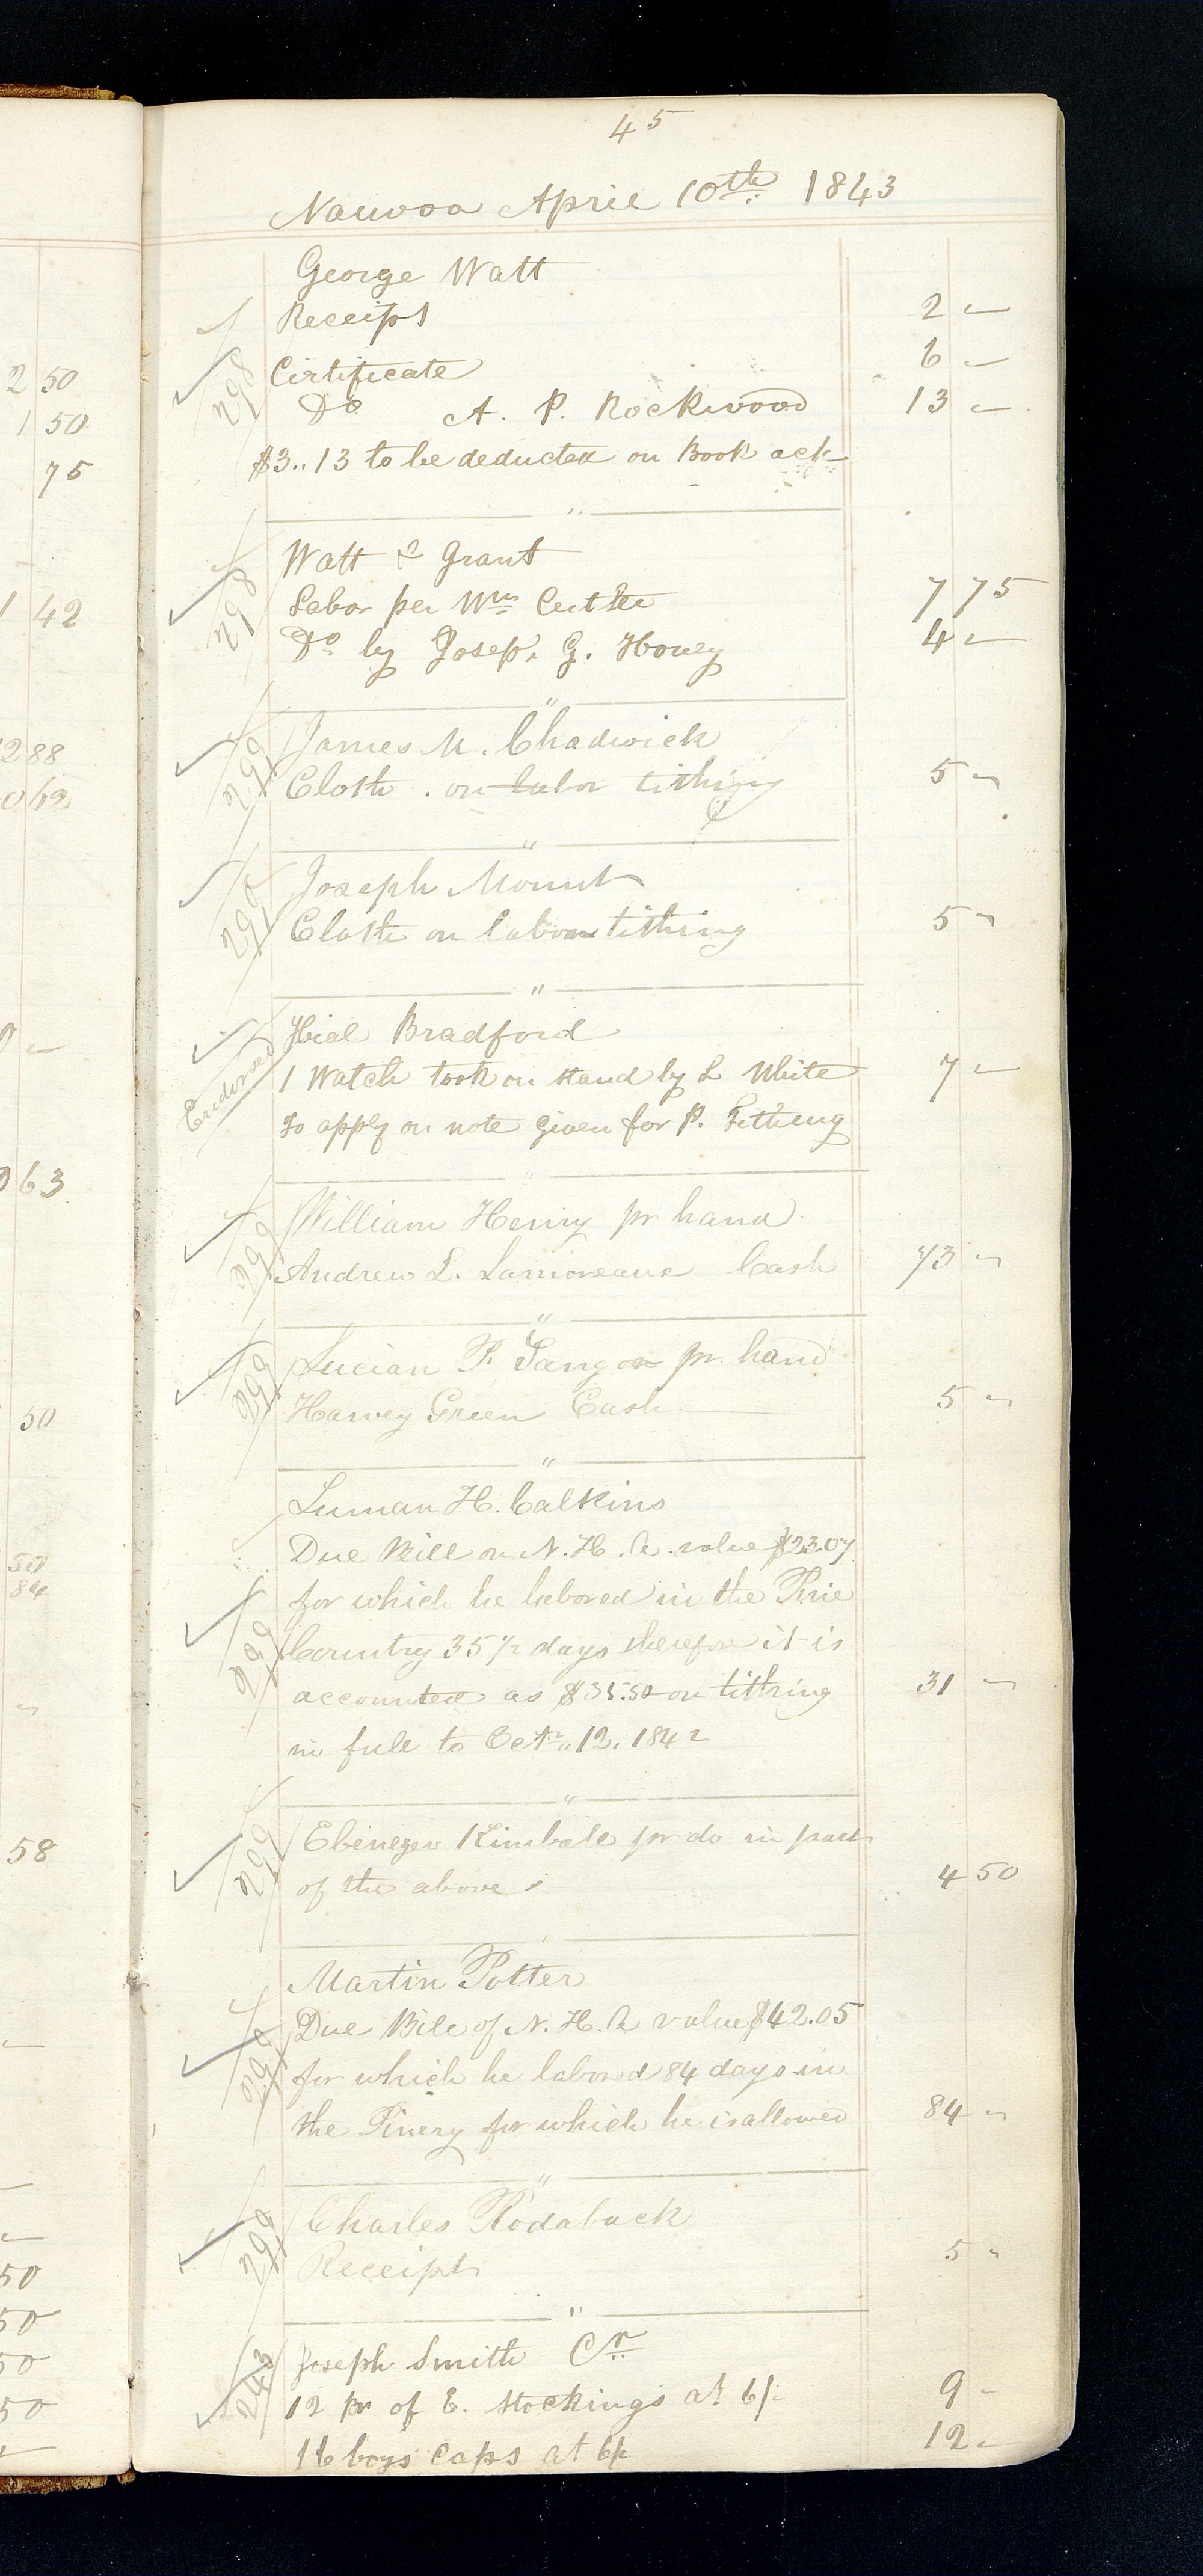 45
Nauvoo April 10th 1843
George Watt
Receipt 2 -
298 Certificate 6 -
Do A. P. Rockwood 13 -
$3..13 to be deducted on Book act
Watt & Grant
298 Labor per Wm Cutler 7 75
Do by Josep. G. Hovey 4 -
299 James M. Chadwick
Cloth . on labor tithing 5 -
299 Joseph Mount
Cloth on labor tithing 5 -
Hial Bradford
Endorsed 1 Watch took on stand by L White 7 -
To apply on note given for P. Tithing
299 William Henry pr hand
Andrew L. Lamoreaux Cash 73 -
299 Lucian F. pr. hand
Harvey Green Cash 5 -
Luman H. Calkins
Due Bill on N. H. A. value $23.07
for which he labored in the Pine
299 Country 35 1/2 days therefore it is
accounted as $35.50 on tithing 31 -
in full to Oct. 12. 1842
299 Ebenezer Kimbale pr do in part
of the above 4 50
Martin Potter
299 Due Bill of N. H. A value $42.05
for which he labored 84 days in
the Pinery for which he is allowed 84 -
299 Charles Rodaback
Receipt 5 -
243 Joseph Smith Cr
12 Pr of E. Stockings at 6/- 9 -
16 boys caps at 6/- 12 -
2 50
1 50
75
1 42
2 88
0 62
0 63
50
50
84
58
50
50
50
50